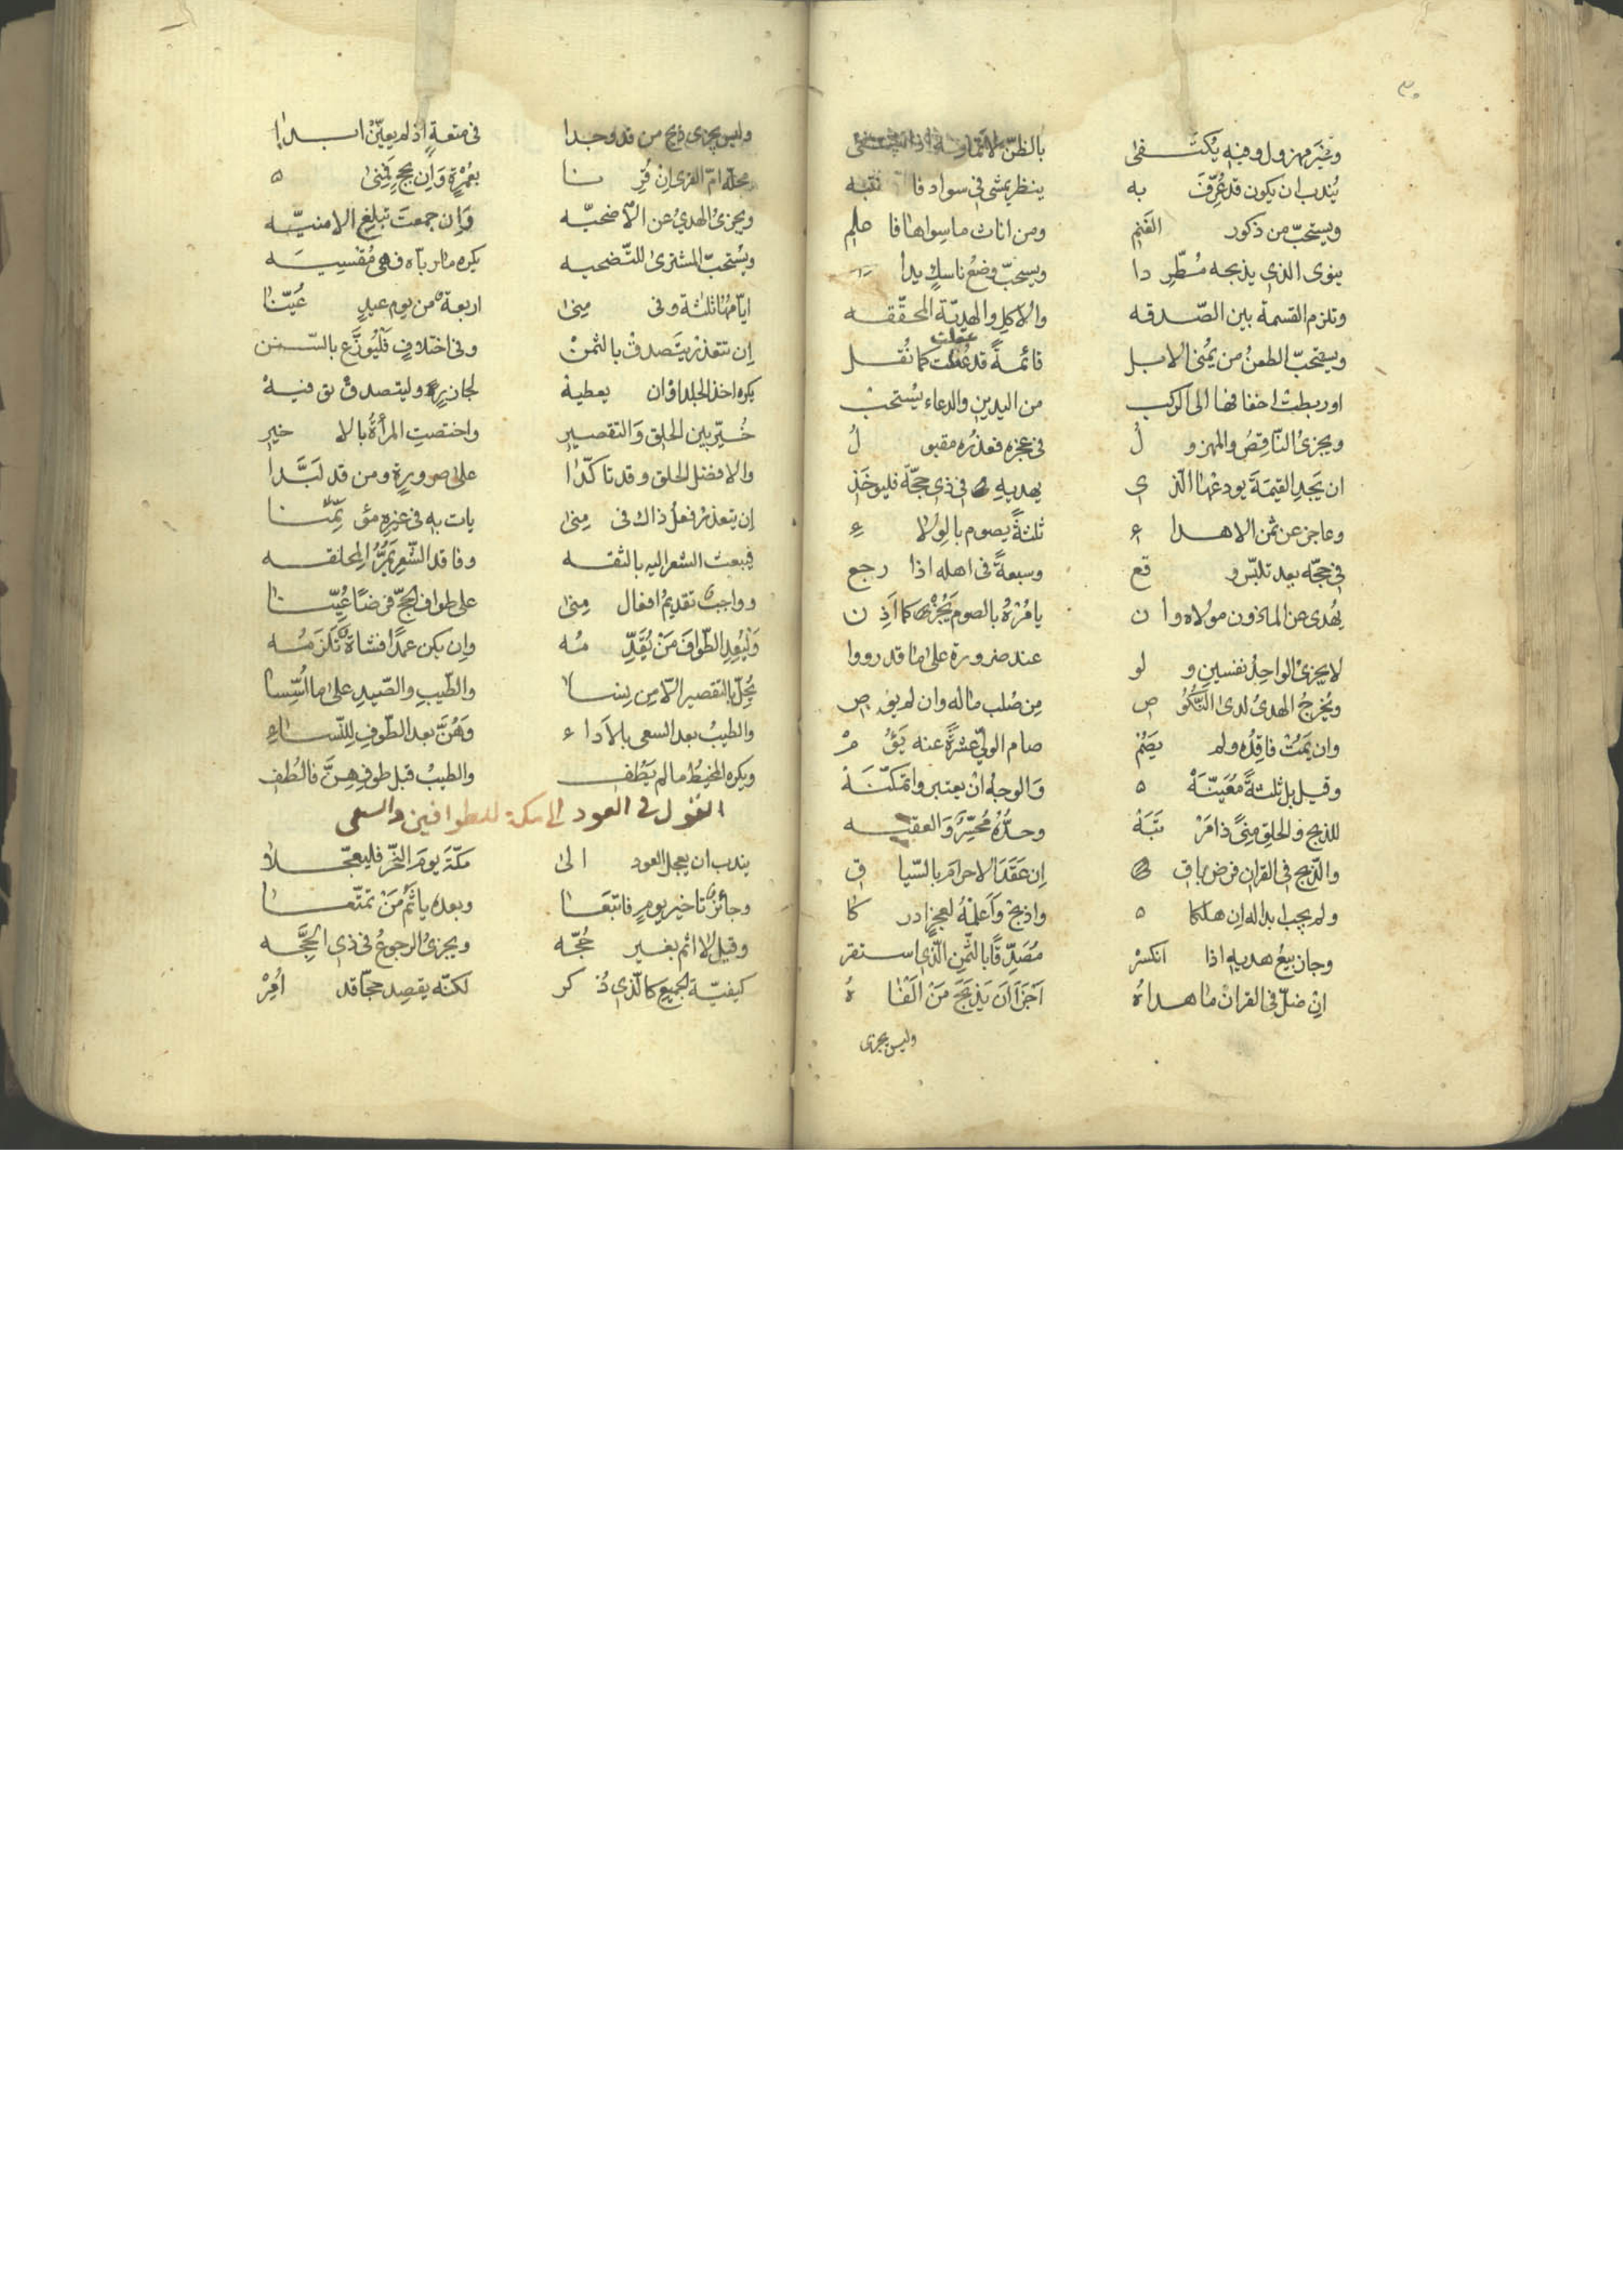 ٣٠
وغير مهزول وفيه يكتفى بالظنّ لا
يُندب ان يكون قد عُرِّفَ به ينظر يمشى فى سواد فانتبه
ويستحبّ من ذكور الغَنَم ومن اناث ما سواها فاعلم
ينوى الذى يذبحه مُطّردا ويستحبّ وضعُ ناسكٍ يدا
وتلزم القسمة بين الصّدقه والاكل والهديّة المحقّقه
ويستحبّ الطعنُ من يُمنى الابل قائمةً قد عُقلت كما نُقل
عقلت
او ربطت اخفافها الى الركب من اليدين والدعاء يُستحبّ
ويجزىُ الناقِصُ والمهزولُ فى عجزه فعذرُه مقبولُ
ان يَجدِ القيمَةَ يودعْها الّذى يهديهِ فى ذى حجّةً فليؤخَذِ
وعاجز عن ثمن الاهداءِ ثلثةً يصوم بالوِلاءِ
فى حجّه بعد تلبّس وقع وسبعةً فى اهله اذا رجع
يُهدى عن الماذون مولاه وان يامُرْهُ بالصوم يَجُزْ كما اَذِن
لا يجزىُ الواحدُ نفسين ولو عند ضرورة على ما قد رووا
ويُخرجُ الهدىُ لدى النُّكوُص مِن صُلب ماله وان لم يوص
وان يَمُتْ فاقِدُه ولم يَصُمْ صام الولىّ عشرةً عنه يَؤُمْ
وقيل بل ثلثةً مُعَيّنَهْ وَالوجهُ ان يعتبروا تمكّنَهْ
للذبح والحلق مِنىً ذا مَرْتَبَهْ وحدُّهُ مُحَسِّرٌ وَالعقبه
والذّبح فى القران فرض باق اِن عَقَدَ الاحرامَ بالسّياق
ولم يجب ابداله اِن هلكا واذبحْ وَاَعلمْهُ لعجزٍ ادركا
وجاز بيعُ هديهِ اذا انكسرْ مُصَدِّقًا بالثّمن الّذى استقر
اِن ضلّ فى القران ما هداهُ اَجزَأ اَن يَذبَحَ مَنْ اَلفَاهُ
وليس يجزى
وليس يجزى ذبح من قد وجدا فى متعةٍ اذ لم يعيّنْ ابدا
محلّه امّ القرى اِن قُرِنا بعُمْرةٍ وَاِن بحجٍ فمِنى
ويجزىُ الهدىُ عن الاُضحيّه وَاِن جمعتَ تبلغ الامنيّه
ويُستحبّ المشترىٰ للتّضحيه يكره ما ربّاه فهى مُقسِيَه
ايّامُها ثلثة وفى مِنى اربعةٌ من يوم عيدٍ عُيّنا
اِن تتعذرْ يتَصدقْ بالثمنْ وفى اختلافٍ فَلْيُوزَّع بالسّنن
يكره اخذ الجلد او ان يعطيهْ لجازرٍ وليتصدقْ فيهْ
خُيّر بين الحلق وَالتقصير واختصتِ المرأةُ بالاخير
والافضل الحلق وقد تاكّدا على صرورةٍ ومن قد لَبَّدا
اِن يتعذرْ فعلُ ذاك فى مِنى يات به فى غيره مؤتمنا
فيبعث الشعر اليه بالثقه وفاقد الشّعر يَمُرُّ المِحلقه
وواجبٌ تقديمُ افعال مِنى على طواف الحجّ فرضًا عُيّنا
وَلْيُعِدِ الطّوافَ مَنْ يُقَدِّمُه وان يكن عمدًا فشاةٌ تَلزَمُه
يُحِلّ بالتقصير الّا مِن نِسا والطّيبِ والصّيدِ على ما اُسِّسا
والطيبُ بعد السعى بالاَداء وَهُنَّ بعد الطّوفِ للنّساءِ
ويكره المخيطُ ما لم يَطُفِ والطيبُ قبل طوفِهِنَّ فالطُفِ
القول فى العود الى مكة للطوافين والسعى
يندب ان يعجل العود الى مكّةَ يومَ النّحر فليعجّلا
وجائزٌ تاخير يومٍ فاتبَعَا وبعده ياثَمُ مَنْ تمتّعا
وقيل لا اثم بغير حُجّه ويجزئُ الرجوعُ فى ذى الحِجَّه
كيفيّة الجميع كالّذى ذُكر لكنّه يقصِد حجّا قد اُمِرْ